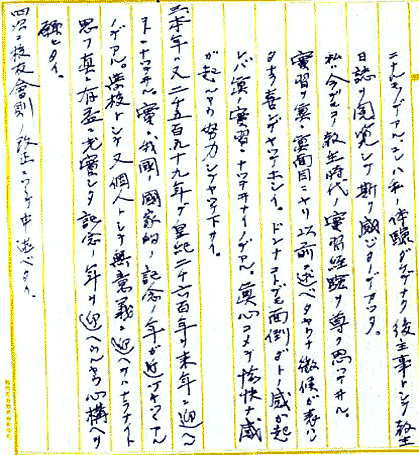 ニナルモノデアル。コレハ私ノ体験ダケデナク後主事トシテ教生
日誌ヲ閲覧シテ斯ク感ジタノデアッタ。
私ハ今デモアノ教生時代ノ実習経験ヲ尊ク思ツテヰル。
実習ヲ真ニ真面目ニヤリ以前ニ述ベタヤウナ徴候ガ表ハレ
タラ喜ンデヤツテホシイ。ドンナコトデモ面倒ダトノ感ガ起
レバ真ノ実習トナツテヰナイノデアル。真心コメテ愉快ナ感
ガ起ルヤウ努力シテヤツテ下サイ。
三、本年ハ又二千五百九十九年デ皇紀二千六百年ヲ来年ニ迎ヘル
トナツテヰル。実ニ我国ノ国家的ノ記念ノ年ガ近ヅキツヽアル
ノデアル。学校トシテ又個人トシテ無意義ニ迎ヘテハナラナイト
思フ。真ニ有益ニ充実シタ記念ノ年ヲ迎ヘラレルヤウ心構ヘヲ
願ヒタイ。
四、次ニ校友会則ノ改正ニツキ申述ベタイ。